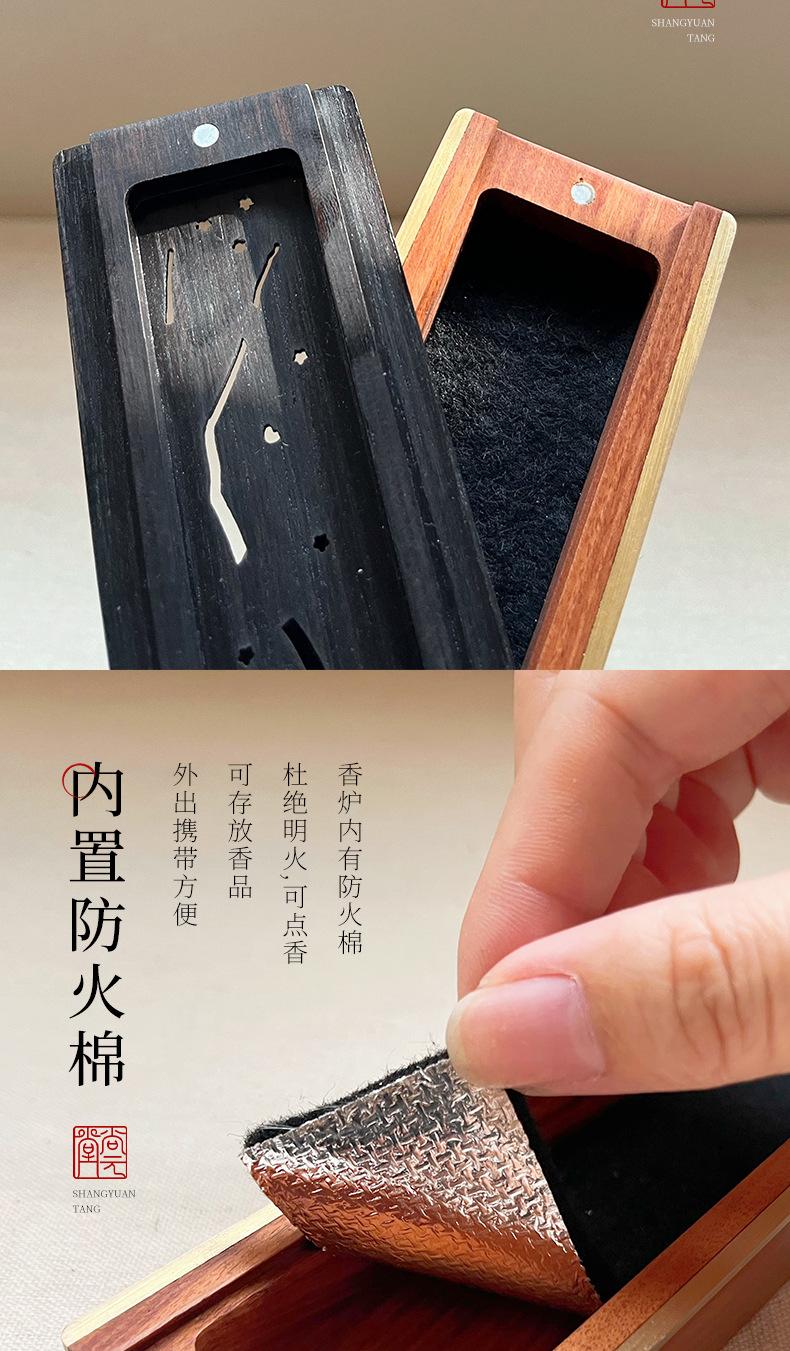 SHANGYUAN
TANG
内置防火棉
香炉内有防火棉
杜绝明火,可点香
可存放香品
外出携带方便
尚元堂
SHANGYUAN
TANG